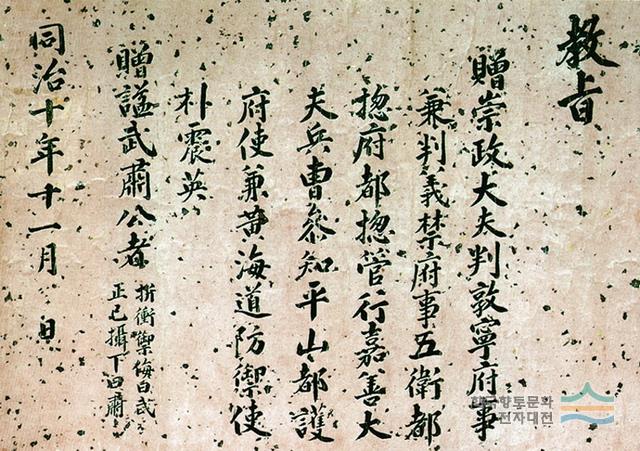 敎旨
贈崇政大夫判敦寧府事
兼判義禁府事五衛都
摠府都摠管行嘉善大
夫兵曹參知平山都護
府使兼黃海道防禦使
朴震英
贈諡武肅公者
折衝禦侮曰武
正己攝下曰肅
同治十年十一月 日
향토문화
전자대전